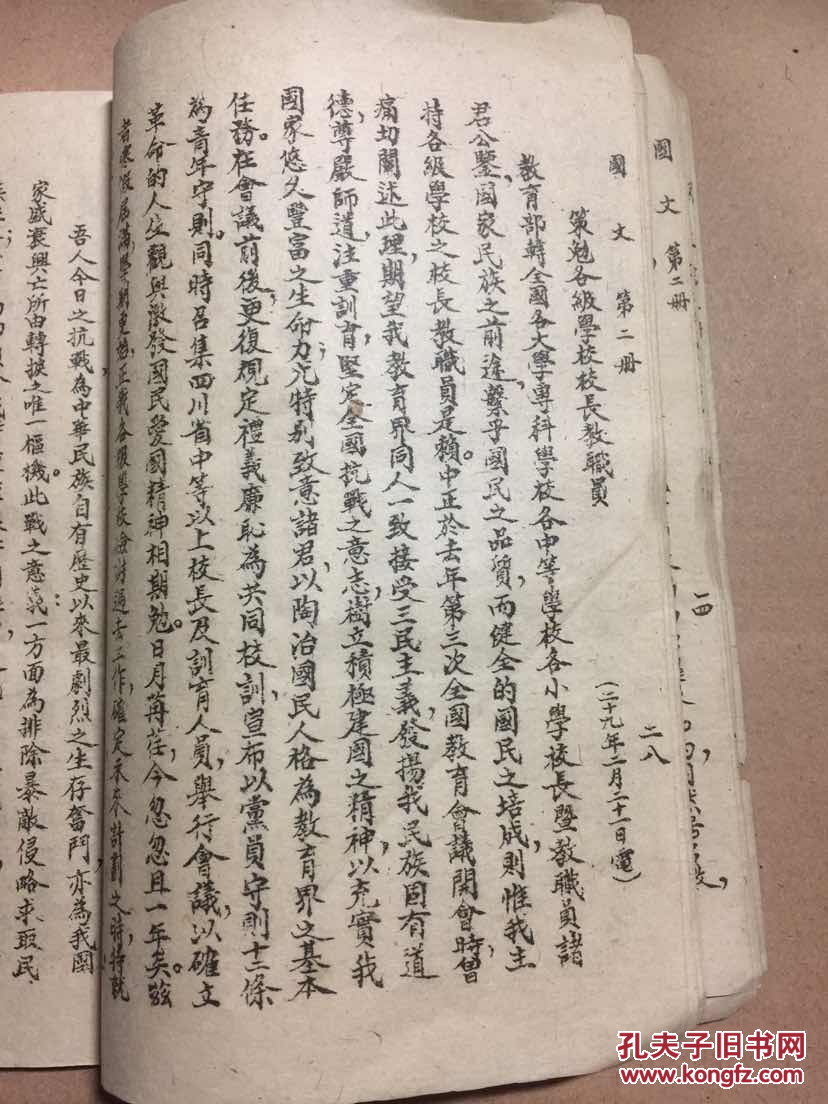 國文 第二册
一四
國文 第二册 二八
策勉各級學校校長教職員
(二十九年二月二十一日電)
教育部轉全國各大學專科學校各中等學校各小學校長暨教職員諸
君公鑒,國家民族之前途,繫乎國民之品質,而健全的國民之培成,則惟我主
持各級學校之校長教職員是賴。中正於去年第三次全國教育會議開會時,曾
痛切闡述此理,期望我教育界同人一致接受三民主義,發揚我民族固有道
德,尊嚴師道,注重訓育,堅定全國抗戰之意志,樹立積極建國之精神,以充實我
國家悠久豐富之生命力;尤特別致意諸君,以陶冶國民人格為教育界之基本
任務。在會議前後,更復規定禮義廉恥為共同校訓,宣布以黨員守則十二條
為青年守則。同時召集四川省中等以上校長及訓育人員,舉行會議,以確立
革命的人生觀與激發國民愛國精神相期勉。日月荏苒,今忽忽且一年矣。茲
者寒假屆滿,學期更始,正我各級學校檢討過去工作,確定未來計劃之時,特就
吾人今日之抗戰為中華民族自有歷史以來最劇烈之生存奮鬥,亦為我國
家盛衰興亡所由轉捩之唯一樞機。此戰之意義:一方面為排除暴敵侵略,求取民
孔夫子旧书网
www.kongfz.com